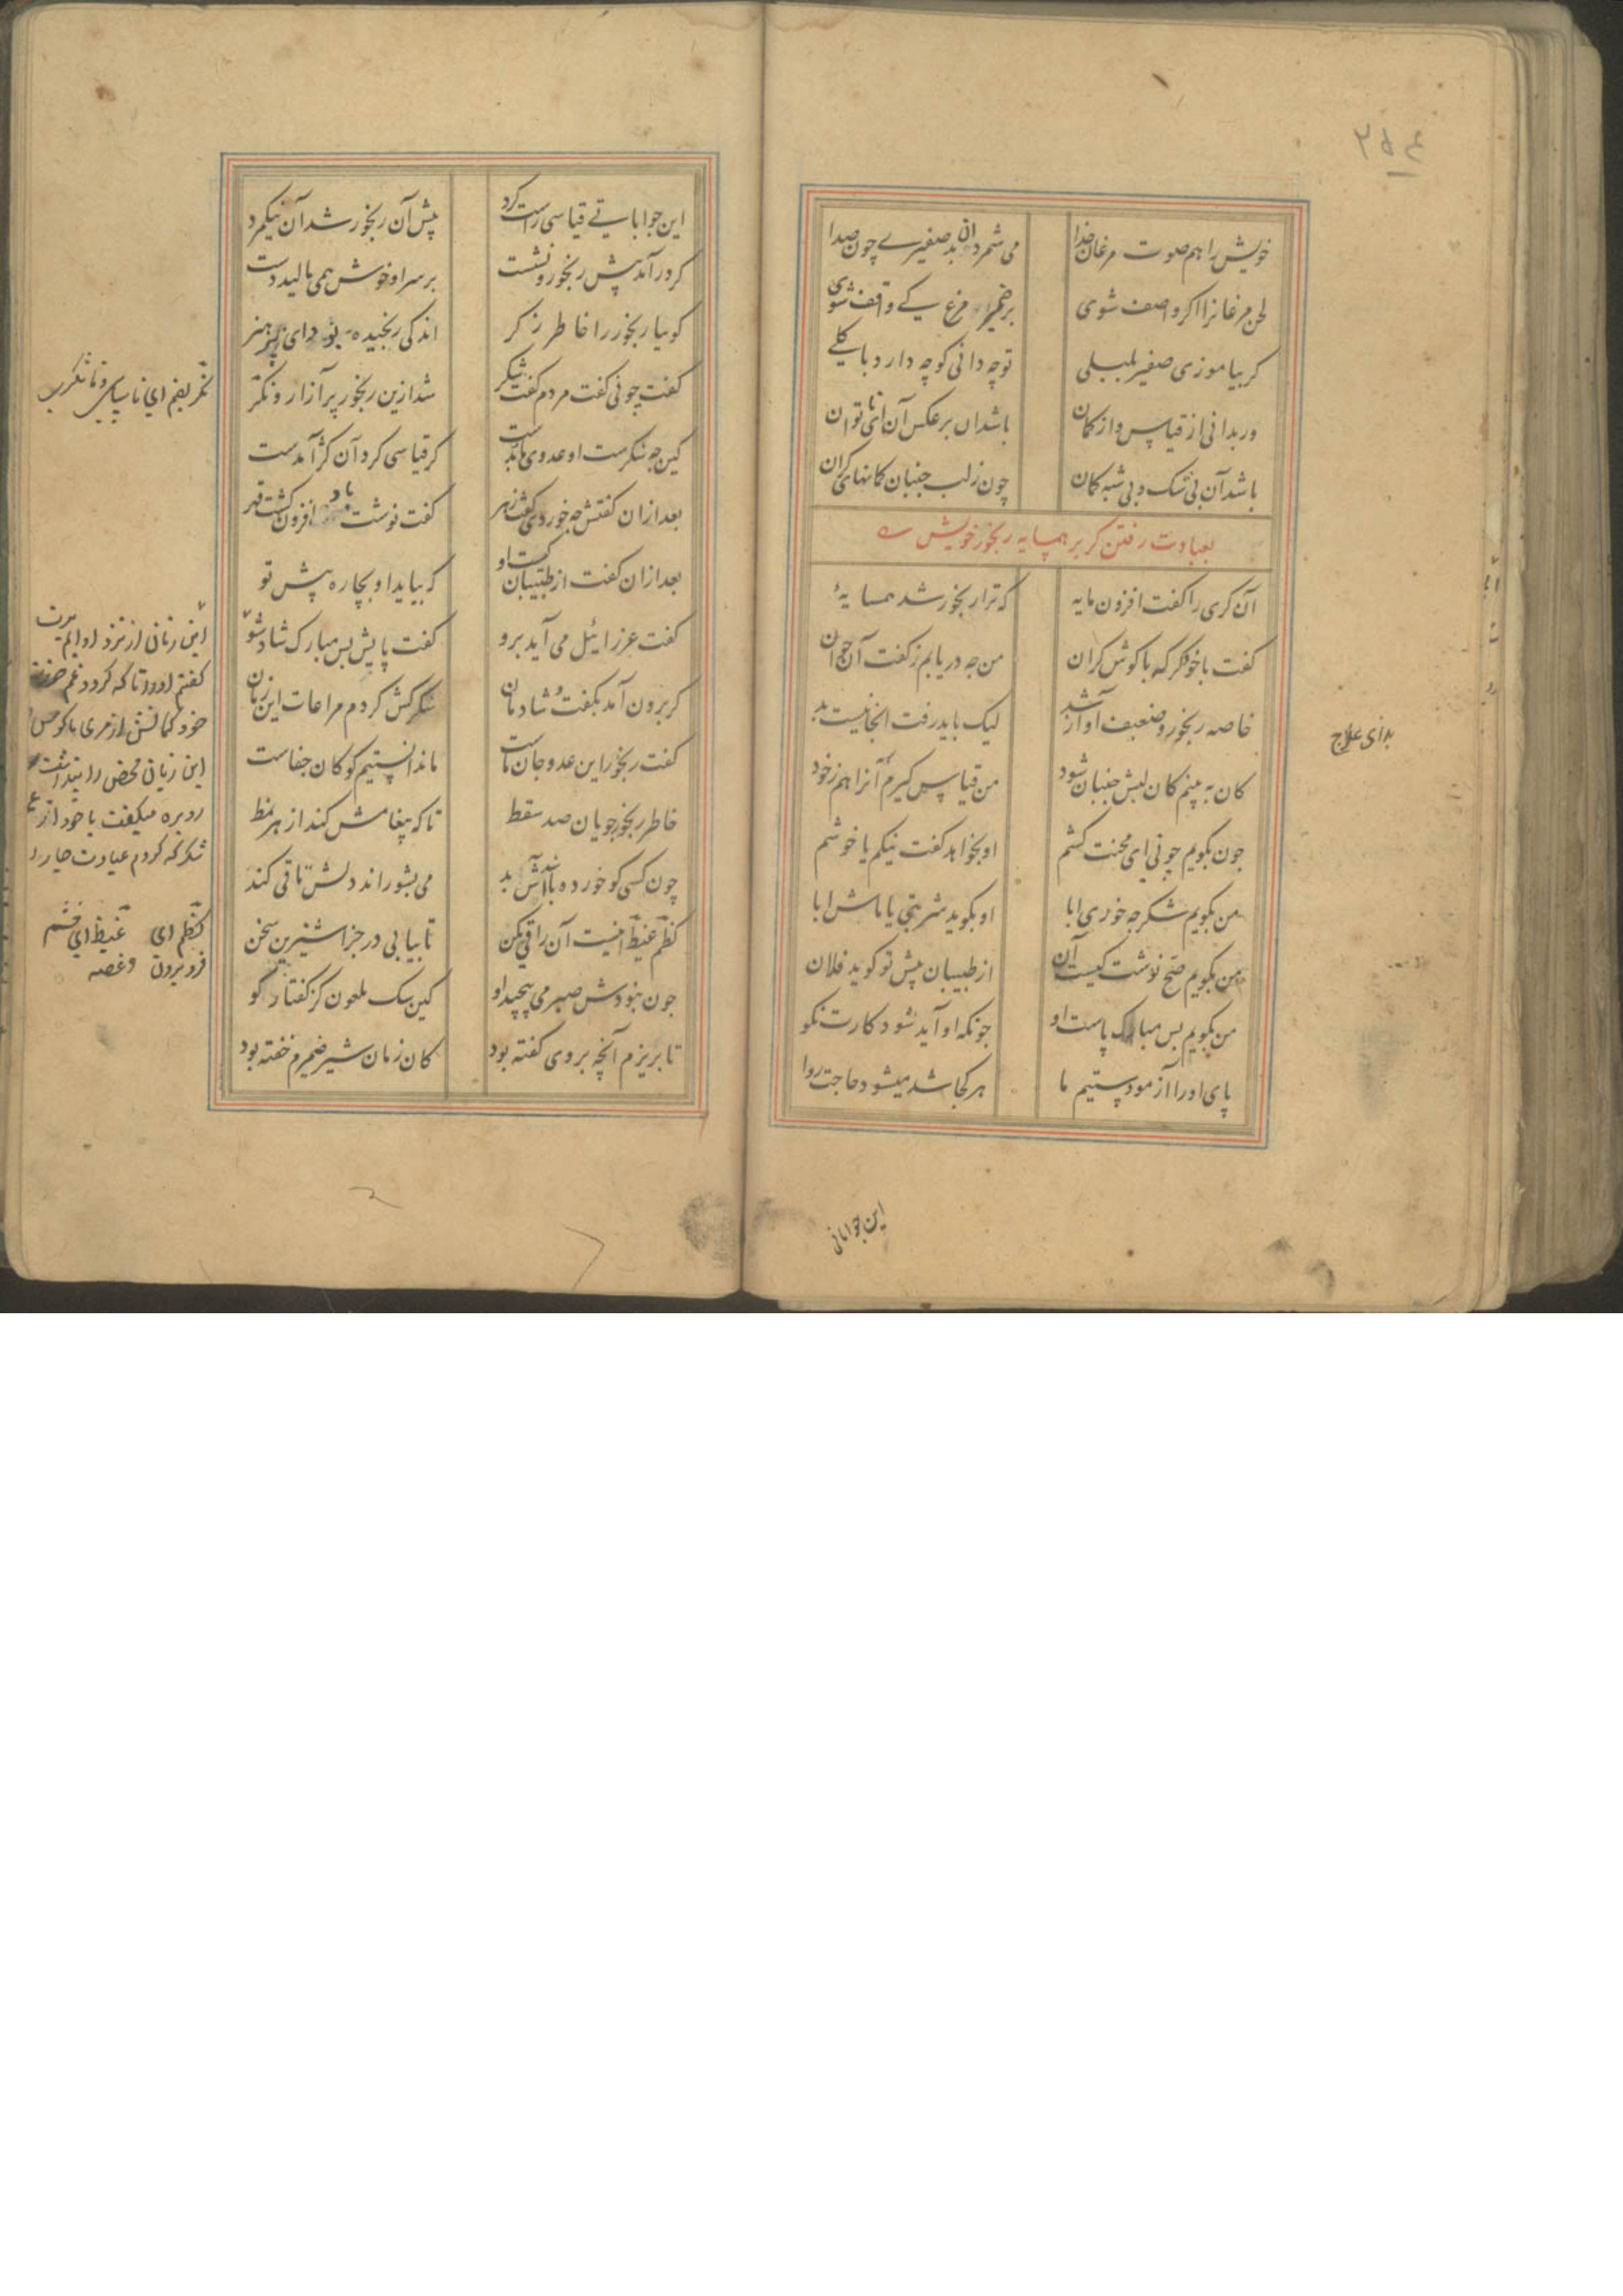 ۲۵۴
خویش را هم صوت مرغان خدا می شمرد آن بد صفیرے چون صدا
لحن مرغانرا اکر واصف شوی بر ضمیر مرغ کے واقف شوی
کر بیاموزی صفیر بلبلی تو چه دانی کو چه دارد با کلے
ور بدانی از قیاس و از کمان باشد آن بر عکس آن ای ناتوان
باشد آن بی شک و بی شبه کمان چون ز لب جنبان کمانهای کران
بعیادت رفتن کر بر همسایه رنجور خویش
آن کری را کفت افزون مایه که ترا رنجور شد همسایۀ
کفت با خود کر که با کوش کران من چه دریابم ز کفت آن جوان
خاصه رنجور و ضعیف آواز شد لیک باید رفت آنجا نیست بد
کان به بینم کان لبش جنبان شود من قیاسی کیرم آنرا هم ز خود
چون بکویم چونی ای محنت کشم او بخواهد کفت نیکم یا خوشم
من بکویم شکر چه خوردی ابا او بکوید شربتی یا ماش ابا
من بکویم صح نوشت کیست آن از طبیبان پیش تو کوید فلان
من بکویم بس مبارک پاست او چونکه او آید شود کارت نکو
پای او را آزمودستیم ما هر کجا شد میشود حاجت روا
بدای علاج
این جواباتی
این جوابات قیاسی راست کرد پیش آن رنجور شد آن نیکمرد
کر درآمد پیش رنجور و نشست بر سر او خوش همی مالید دست
کوییا رنجور را خاطر ز کر اندکی رنجیده بود ای پر هنر
کفت چونی کفت مردم کفت شکر شد ازین رنجور پر آزار و نکر
کین چه شکرست او عدوی ما بدست کر قیاسی کرد آن کژ آمدست
بعد ازان کفتش چه خوردی کفت زهر کفت نوشت باد افزون کشت قهر
بعد ازان کفت از طبیبان کیست او که بیاید او بچاره پیش تو
کفت عزرائیل می آید برو کفت پایش بس مبارک شاد شو
کر برون آمد بکفت و شادمان شکر کش کردم مراعات این زمان
کفت رنجور این عدو جان ماست ما ندانستیم کو کان جفاست
خاطر رنجور جویان صد سقط تا که پیغامش کند از هر نمط
چون کسی کو خورده باشد آش بد می بشوراند دلش تا قی کند
کظم غیظ اینست آن را قی مکن تا بیابی در جزا شیرین سخن
چون نبودش صبر می پیچید او کین سک ملعون کژ کفتار کو
تا بریزم آنچه بر وی کفته بود کان زمان شیر ضمیرم خفته بود
این زمانی از نزد او ایم برت
کفتم او را تا که کردد غم
خود کمانش از کری
این زیان محض را پنداشت
رو بره میکفت با خود از
شکر که کردم عیادت جار را
کظم ای غیظ ای خشم
فرو بردن و غصه